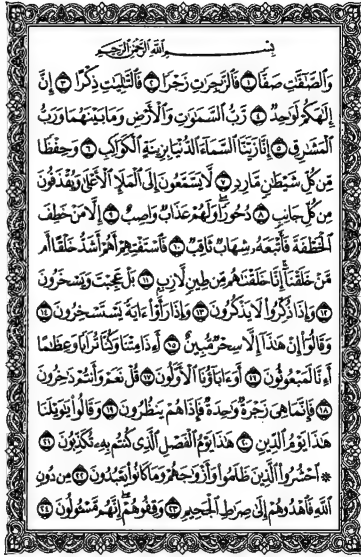 بِسْمِ ٱللَّهِ ٱلرَّحْمَٰنِ ٱلرَّحِيمِ
وَٱلصَّٰٓفَّٰتِ صَفًّا ١ فَٱلزَّٰجِرَٰتِ زَجْرًا ٢ فَٱلتَّٰلِيَٰتِ ذِكْرًا ٣ إِنَّ
إِلَٰهَكُمْ لَوَٰحِدٌ ٤ رَّبُّ ٱلسَّمَٰوَٰتِ وَٱلْأَرْضِ وَمَا بَيْنَهُمَا وَرَبُّ
ٱلْمَشَٰرِقِ ٥ إِنَّا زَيَّنَّا ٱلسَّمَآءَ ٱلدُّنْيَا بِزِينَةٍ ٱلْكَوَاكِبِ ٦ وَحِفْظًا
مِّن كُلِّ شَيْطَٰنٍ مَّارِدٍ ٧ لَّا يَسَّمَّعُونَ إِلَى ٱلْمَلَإِ ٱلْأَعْلَىٰ وَيُقْذَفُونَ
مِن كُلِّ جَانِبٍ ٨ دُحُورًا وَلَهُمْ عَذَابٌ وَاصِبٌ ٩ إِلَّا مَنْ خَطِفَ
ٱلْخَطْفَةَ فَأَتْبَعَهُۥ شِهَابٌ ثَاقِبٌ ١٠ فَٱسْتَفْتِهِمْ أَهُمْ أَشَدُّ خَلْقًا أَم
مَّنْ خَلَقْنَآ إِنَّا خَلَقْنَٰهُم مِّن طِينٍ لَّازِبٍۭ ١١ بَلْ عَجِبْتَ وَيَسْخَرُونَ
١٢ وَإِذَا ذُكِّرُوا۟ لَا يَذْكُرُونَ ١٣ وَإِذَا رَأَوْا۟ ءَايَةً يَسْتَسْخِرُونَ ١٤
وَقَالُوٓا۟ إِنْ هَٰذَآ إِلَّا سِحْرٌ مُّبِينٌ ١٥ أَءِذَا مِتْنَا وَكُنَّا تُرَابًا وَعِظَٰمًا
أَءِنَّا لَمَبْعُوثُونَ ١٦ أَوَءَابَآؤُنَا ٱلْأَوَّلُونَ ١٧ قُلْ نَعَمْ وَأَنتُمْ دَٰخِرُونَ
١٨ فَإِنَّمَا هِىَ زَجْرَةٌ وَٰحِدَةٌ فَإِذَا هُمْ يَنظُرُونَ ١٩ وَقَالُوا۟ يَٰوَيْلَنَا
هَٰذَا يَوْمُ ٱلدِّينِ ٢٠ هَٰذَا يَوْمُ ٱلْفَصْلِ ٱلَّذِى كُنتُم بِهِۦ تُكَذِّبُونَ ٢١
۞ ٱحْشُرُوا۟ ٱلَّذِينَ ظَلَمُوا۟ وَأَزْوَٰجَهُمْ وَمَا كَانُوا۟ يَعْبُدُونَ ٢٢ مِن دُونِ
ٱللَّهِ فَٱهْدُوهُمْ إِلَىٰ صِرَٰطِ ٱلْجَحِيمِ ٢٣ وَقِفُوهُمْ إِنَّهُم مَّسْـُٔولُونَ ٢٤